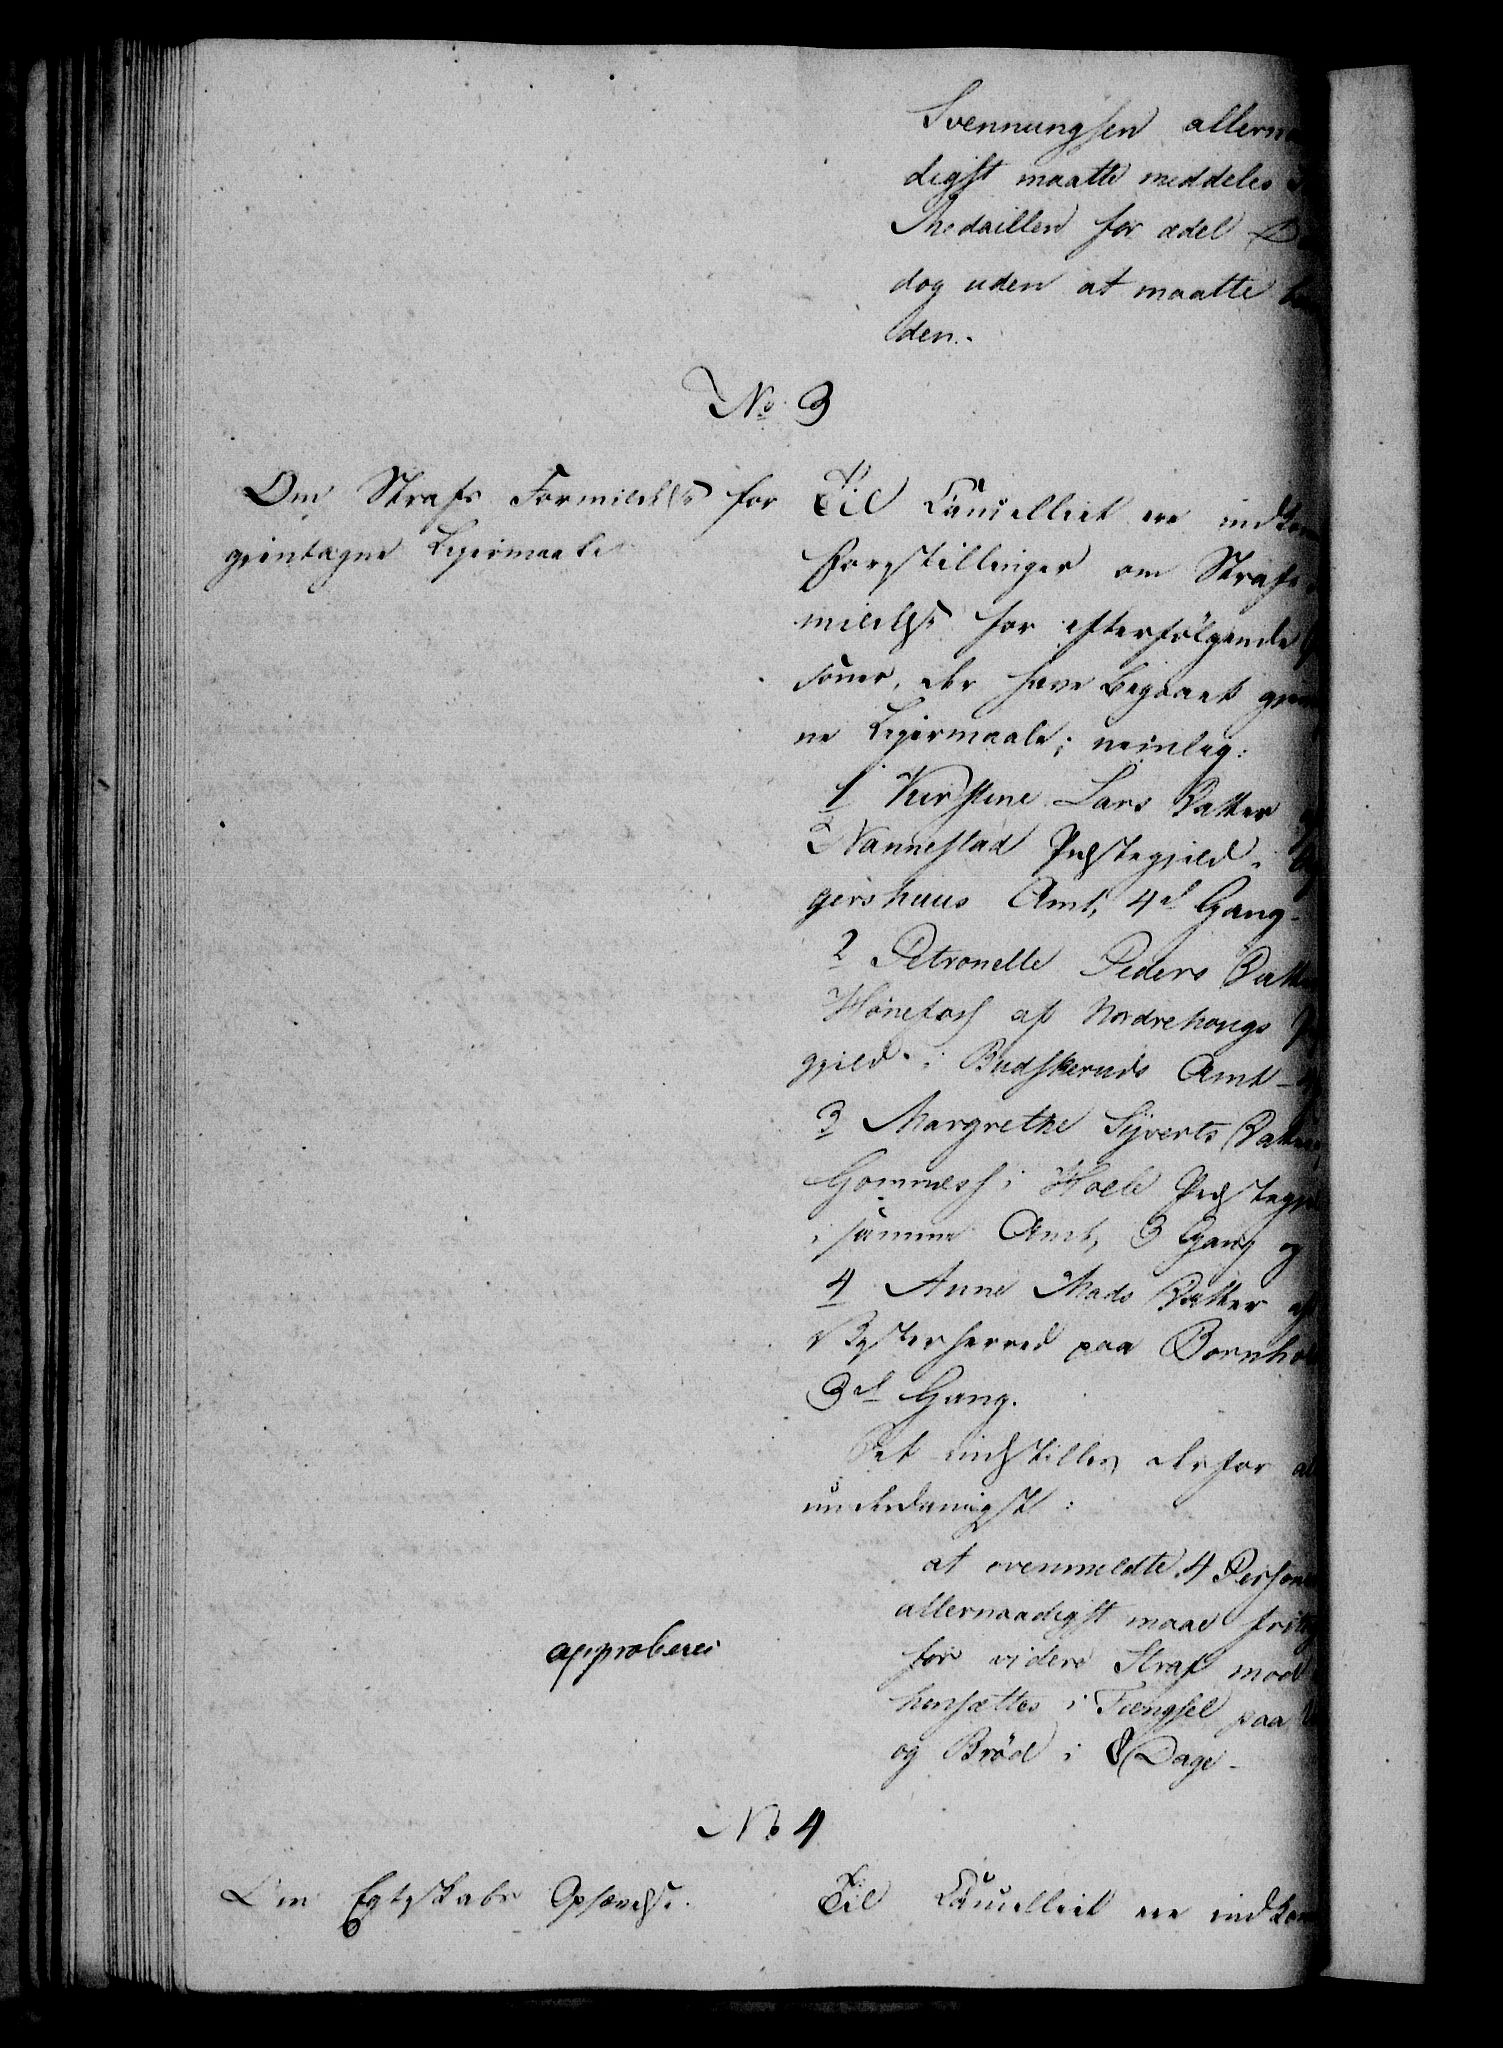 Svennungsen allerna
digst maatte meddeles
Medaillen for ædel D
dog uden at maatte bæ
den.
No 3
Om Strafs Formildelse for
gientagne Leiermaale
Til Cancelliet ere indkom
Forestillinger om Strafs
mildelse for efterfølgende P
soner, der have begaaet gien
ne Leiermaale; nemlig:
1 Kirstine Lars Datter af
Nannestad Præstegield i Ag
gershuus Amt, 4de Gang
2 Petronelle Peders Datte
Hönefos af Nordrehougs P
gield i Budskeruds Amt
3 Margrethe Syverts Datter
Gomnæs i Hoele Præstegie
i samme Amt, 3 Gang og
4 Anne Mads Datter af
Vesterherred paa Bornhol
3de Gang.
Det indstilles derfor al
underdanigst:
at ovenmeldte 4 Persone
allernaadigst maae fritag
for videre Straf mod
hensættes i Fængsel paa V
og Brød i 8 Dage
approberes
No 4
Om Egteskabs Ophævelse.
Til Cancelliet ere indkom